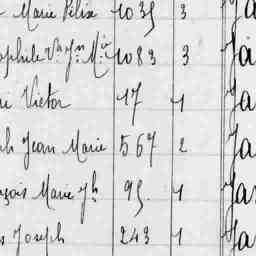 Marie Félix 1035 3 Ja
ophile Vve Jn Mie 1083 3 Ja
Victor 17 1 Ja
Jean Marie 567 2 Ja
nçois Marie Jh 95. 1 Jas
Joseph 243 1 Ja